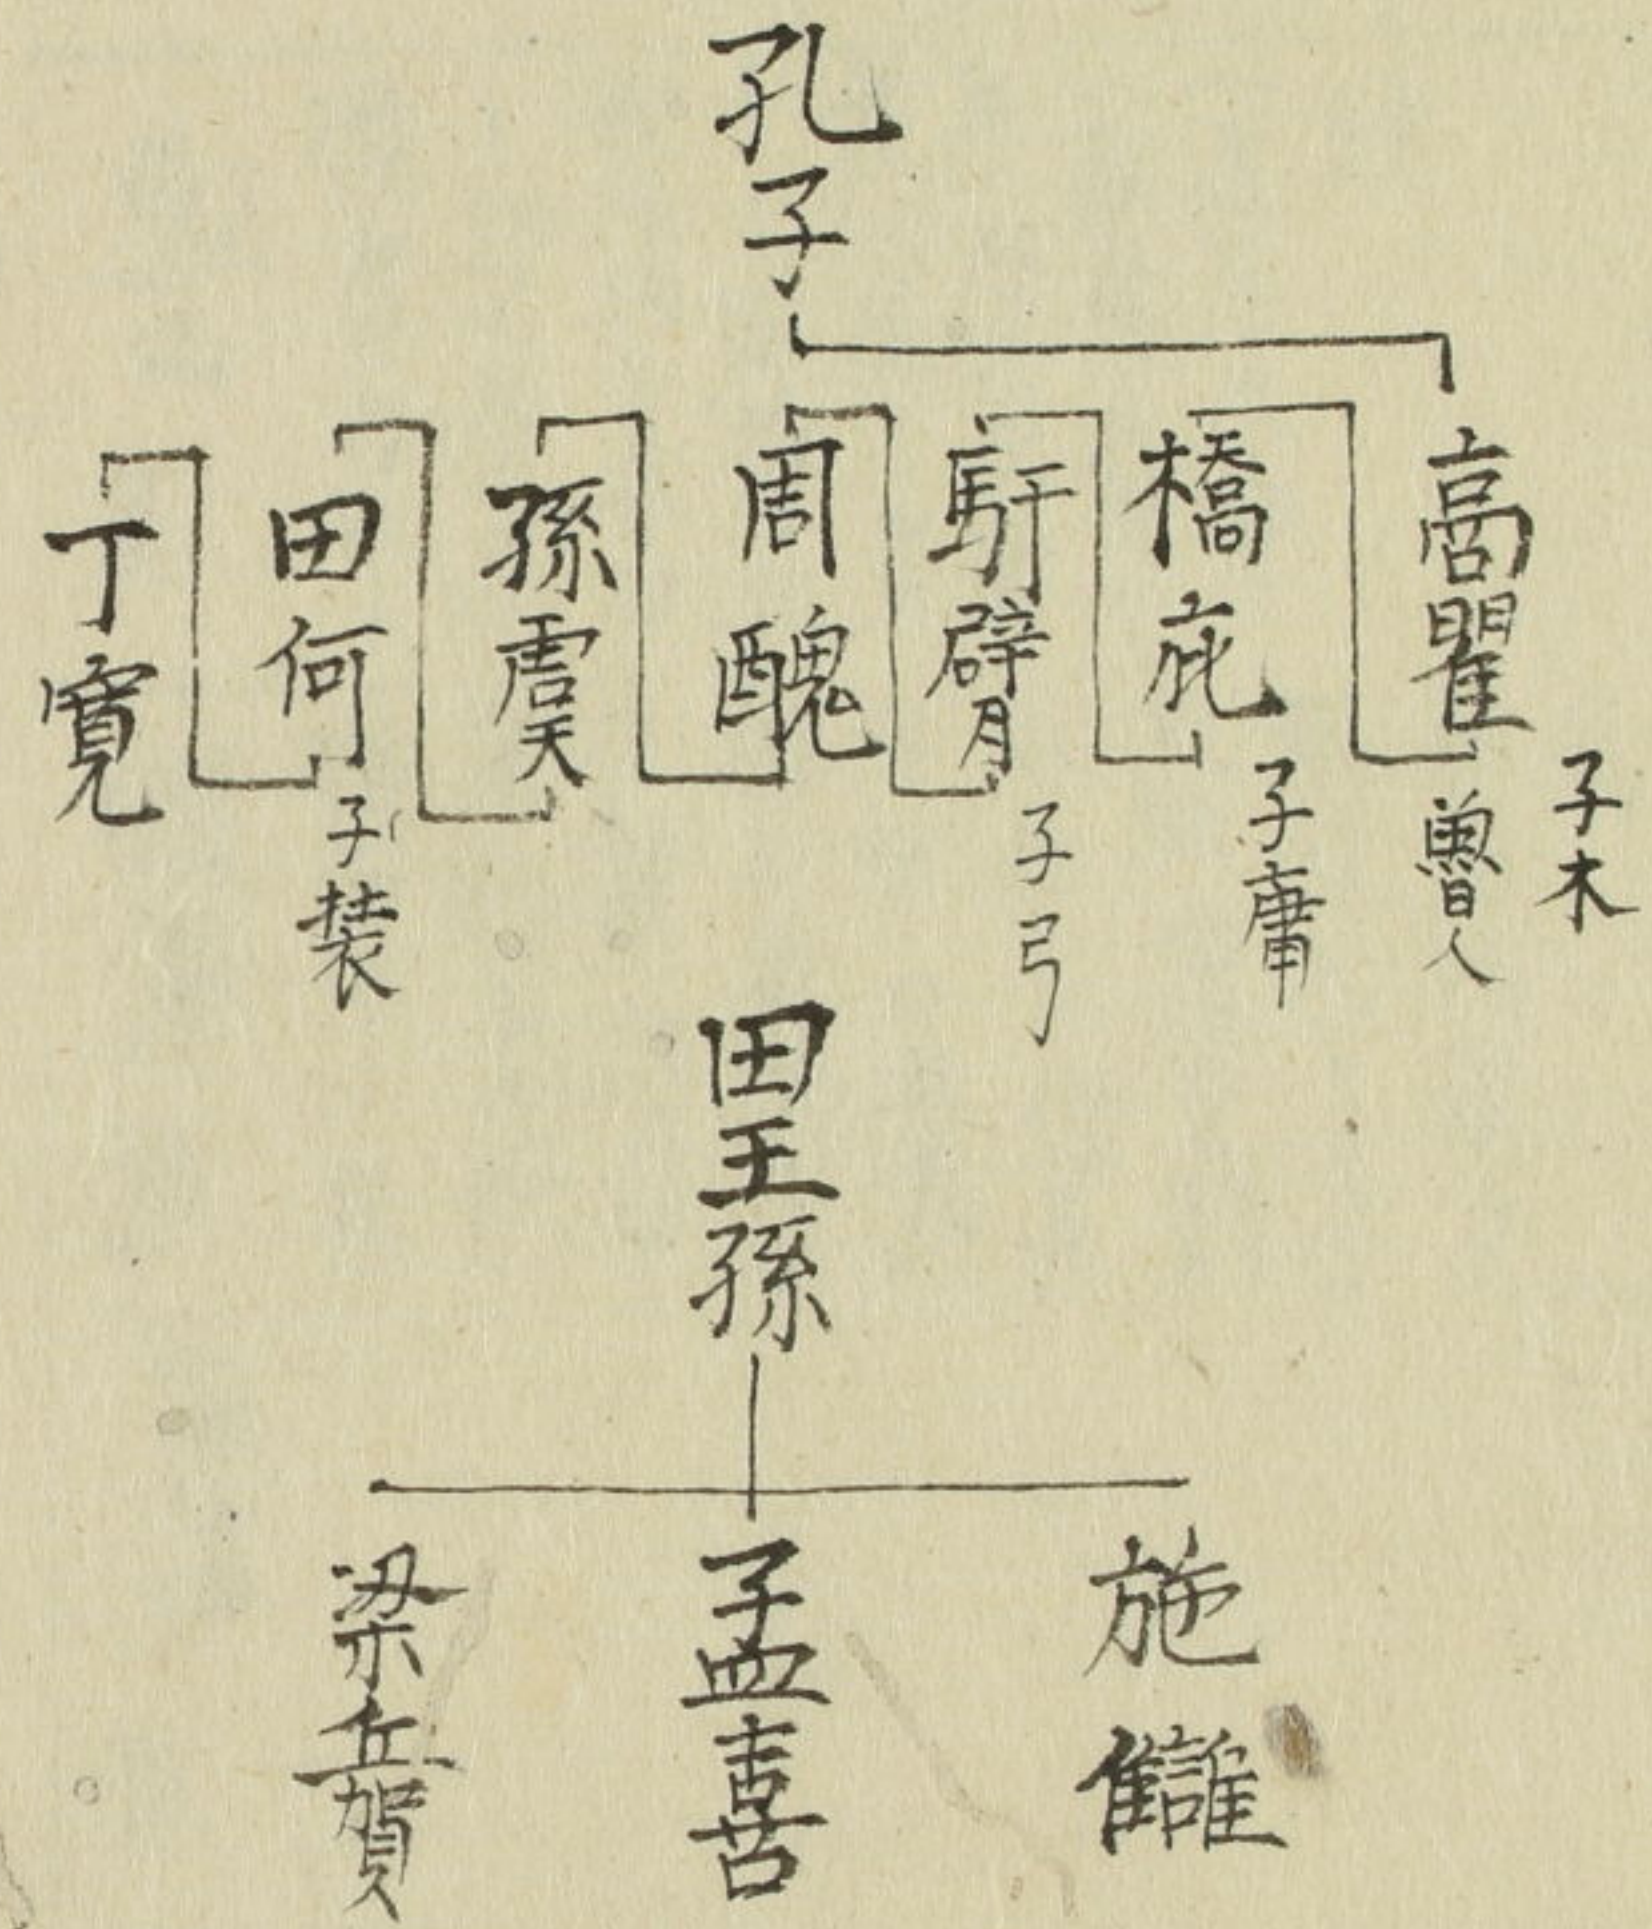 孔子
高瞿
子木
魯人
橋庇
子庸
馯臂
子弓
周醜
孫虞
田何
子装
丁寛
田王孫
施讎
孟喜
梁丘賀